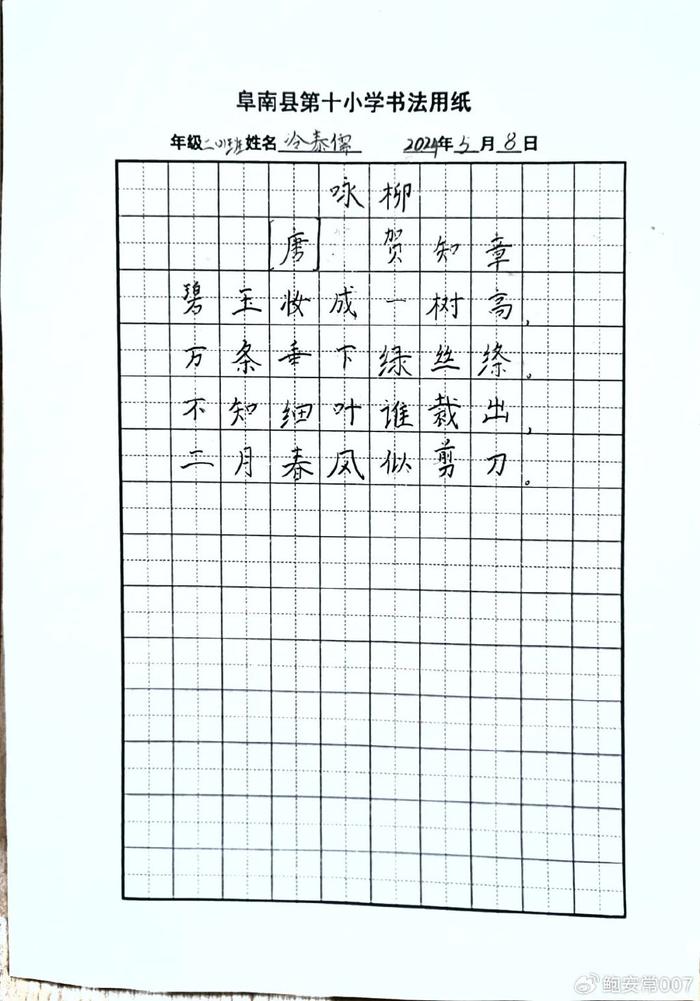 阜南县第十小学书法用纸
年级二(1)班姓名冷泰儒 2024年5月8日
咏柳
[唐] 贺知章
碧玉妆成一树高,
万条垂下绿丝绦。
不知细叶谁裁出,
二月春风似剪刀。
@鲍安常007